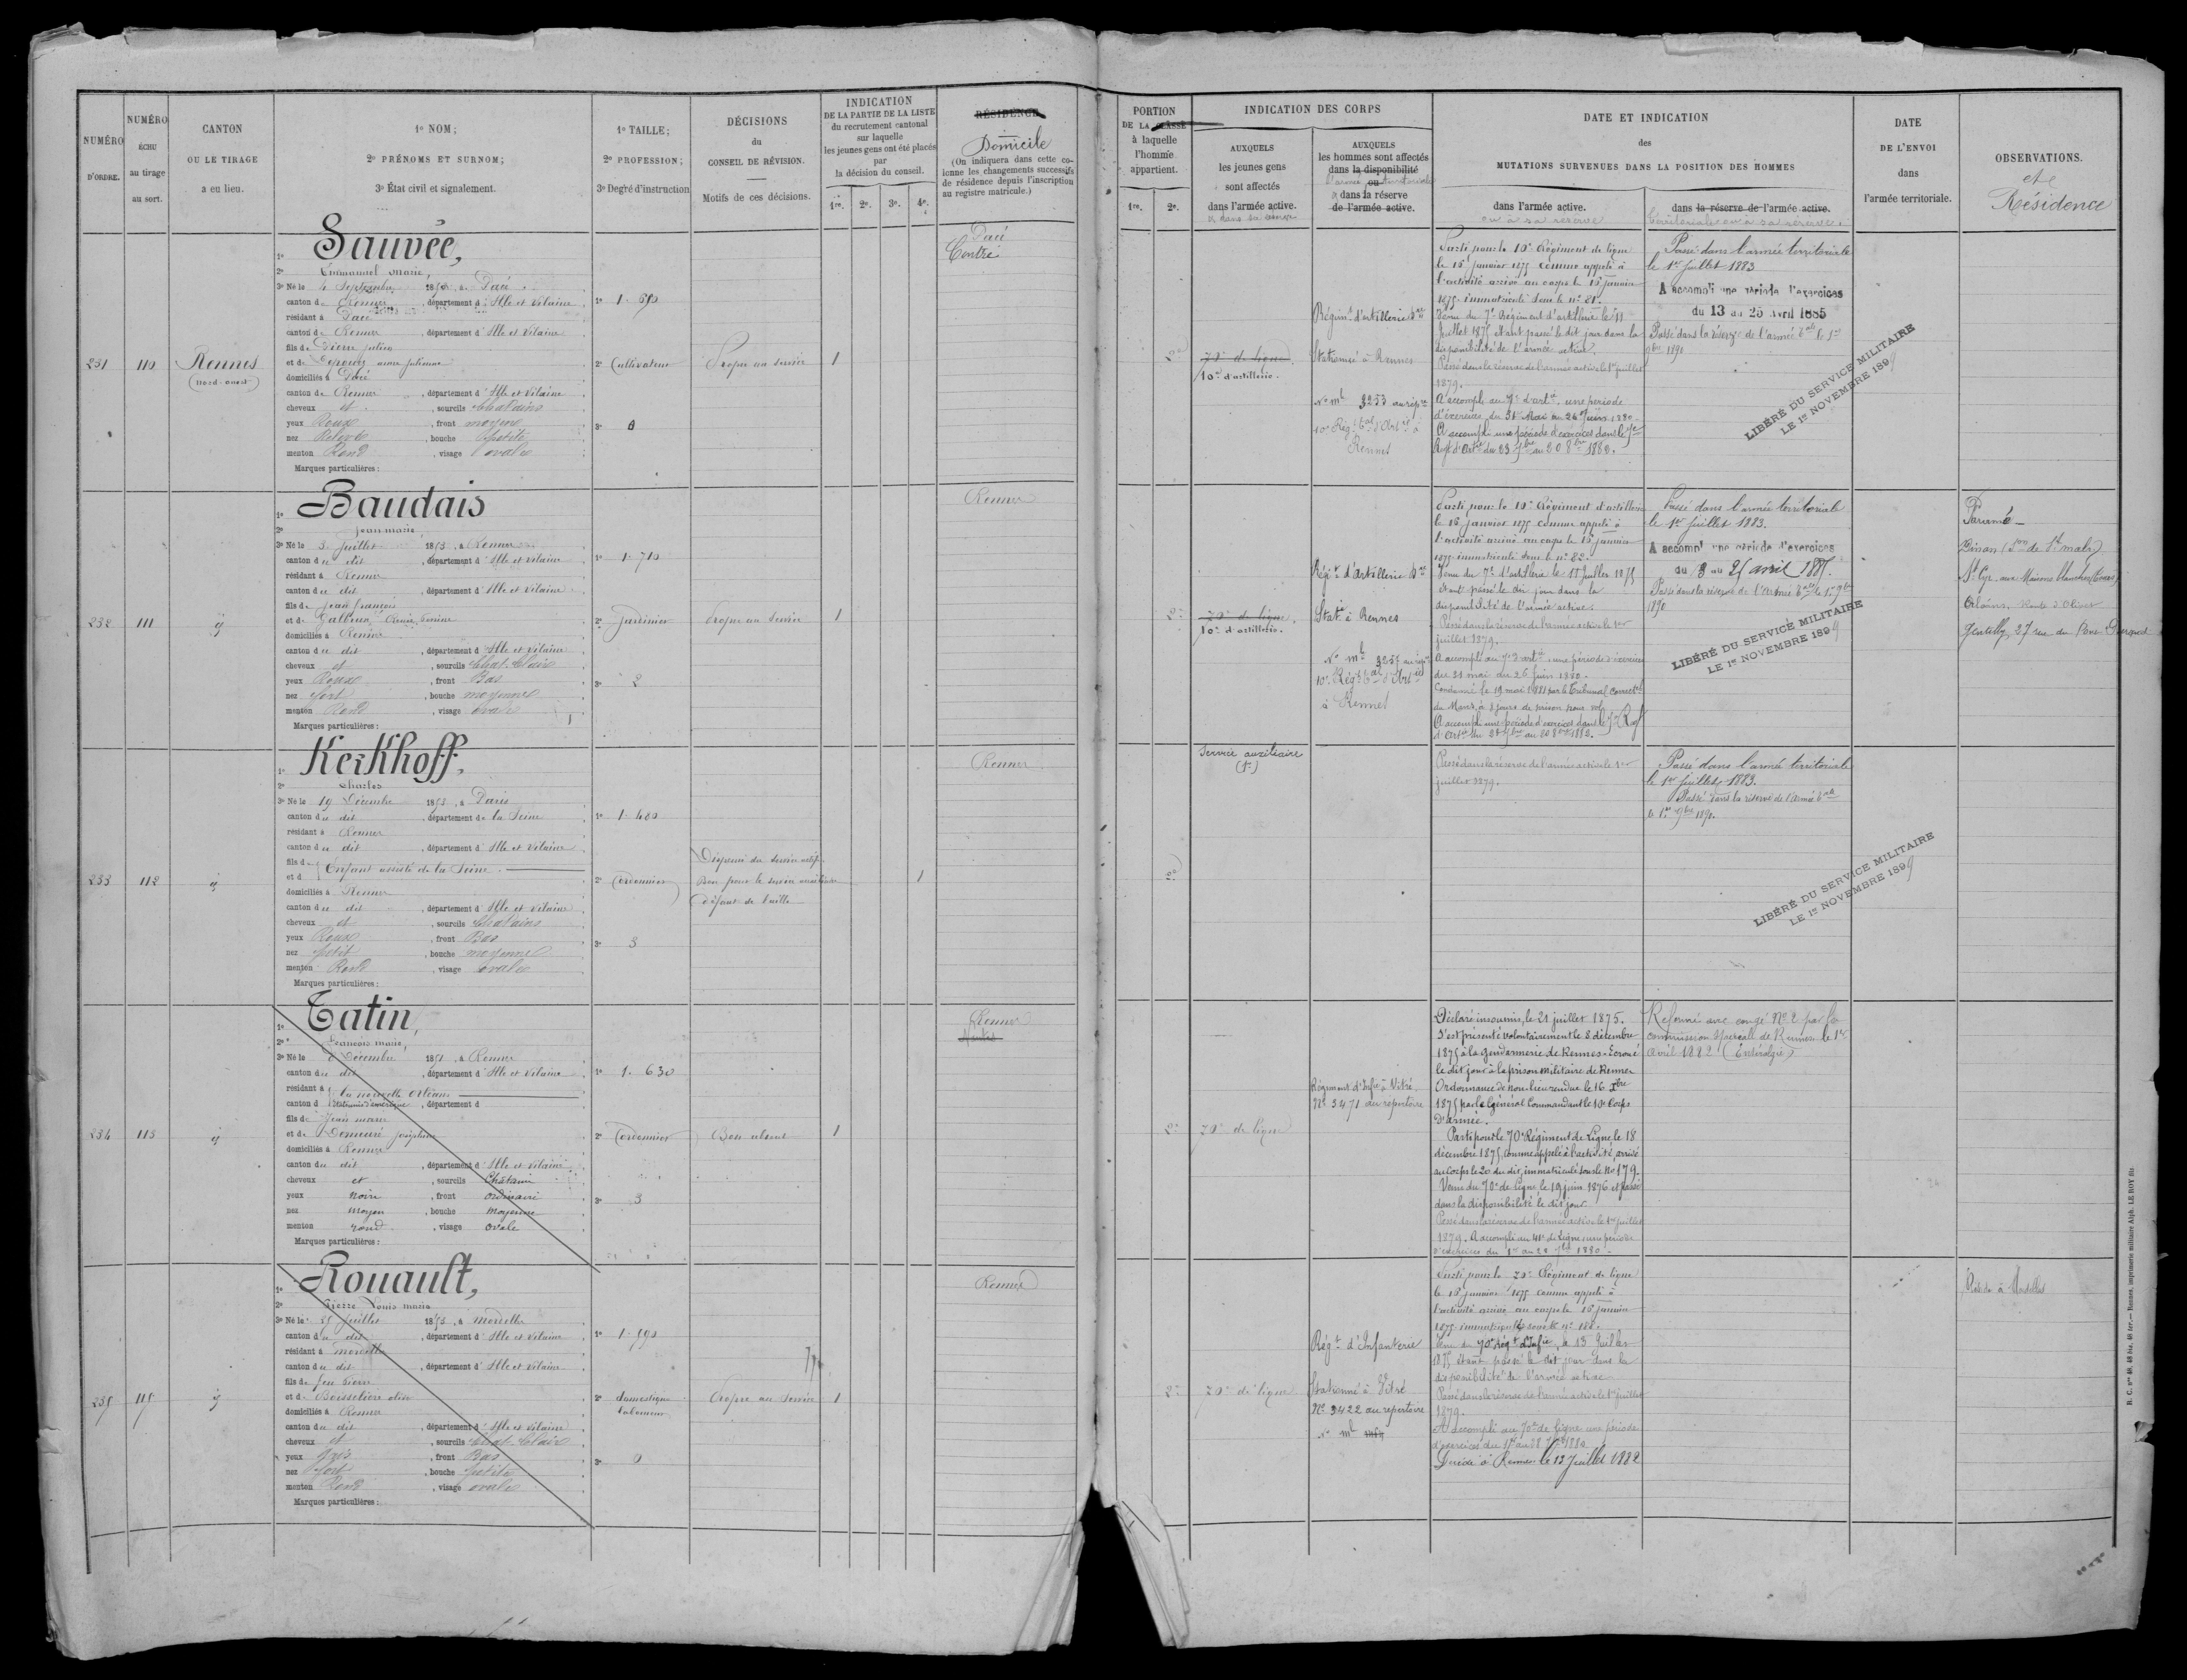 NUMÉRO
D'ORDRE.
NUMÉRO
ÉCHU
au tirage
au sort.
CANTON
OU LE TIRAGE
a eu lieu.
1º NOM;
2º PRÉNOMS ET SURNOM;
3º État civil et signalement.
1º TAILLE;
2º PROFESSION;
3º Degré d'instruction
DÉCISIONS
du
CONSEIL DE RÉVISION.
Motifs de ces décisions.
INDICATION
DE LA PARTIE DE LA LISTE
du recrutement cantonal
sur laquelle
les jeunes gens ont été placés
par
la décision du conseil.
1re. 2e. 3e. 4e.
RÉSIDENCE
Domicile
(On indiquera dans cette co-
lonne les changements successifs
de résidence depuis l'inscription
au registre matricule.)
PORTION
DE LA CLASSE
à laquelle
l'homme
appartient.
1re. 2e.
INDICATION DES CORPS
AUXQUELS
les jeunes gens
sont affectés
dans l'armée active.
AUXQUELS
les hommes sont affectés
dans la disponibilité
ou
dans la réserve
de l'armée active.
DATE ET INDICATION
des
MUTATIONS SURVENUES DANS LA POSITION DES HOMMES
dans l'armée active.
ou à sa réserve
dans la réserve de l'armée active.
territoriale ou à sa réserve
DATE
DE L'ENVOI
dans
l'armée territoriale.
OBSERVATIONS.
et
Résidence
231
110
Rennes
(nord-ouest)
1º Sauvée,
2º Emmanuel Marie,
3º Né le 4 Septembre 1853, à Pacé
canton de Rennes, département d'Ille et Vilaine
résidant à Pacé
canton de Rennes, département d'Ille et Vilaine
fils de Pierre Julien
domiciliés à Pacé
canton de Rennes, département d'Ille et Vilaine
cheveux et, sourcils Chatains
yeux Roux, front moyen
nez Relevé, bouche petite
menton Rond, visage ovale
Marques particulières:
1º 1.690
2º Cultivateur
3º 0
Propre au service
1
Pacé
2e
70e de ligne
10e d'artillerie.
Régimt d'artillerie
Stationné à Rennes
No ml 3253 au rép
10e Régt tal d'Art à
Rennes
Parti pour le 10e Régiment de ligne
le 16 janvier 1875 comme appelé à
l'activité arrivé au corps le 16 janvier
1875. immatriculé sous le nº 81.
Venu du 7e Régiment d'artillerie le 11
Juillet 1875 étant passé le dit jour dans la
disponibilité de l'armée active.
Passé dans la réserve de l'armée active le 1er juillet
1879.
A accompli au 7e d'art. une période
d'exercices du 31 Mai au 26 Juin 1880
A accompli une période d'exercices dans le 7e
Regt d'Art du 23 7bre au 20 8bre 1882.
Passé dans l'armée territoriale
le 1er Juillet 1883
A accompli une période d'exercices
du 13 au 25 avril 1885
Passé dans la réserve de l'armée tale le 1er
9bre 1890
LIBÉRÉ DU SERVICE MILITAIRE
LE 1er NOVEMBRE 1899
232
111
id
1º Baudais
2º Jean Marie
3º Né le 3 Juillet 1853, à Rennes
canton du dit, département d'Ille et Vilaine
résidant à Rennes
canton du dit, département d'Ille et Vilaine
fils de Jean François
domiciliés à Rennes
canton du dit, département d'Ille et Vilaine
cheveux et, sourcils Chat. Clairs
yeux Roux, front Bas
nez fort, bouche moyenne
menton Rond, visage ovale
Marques particulières:
1º 1.710
2º Jardinier
3º 2
Propre au Service
1
Rennes
2e
70e de ligne.
10e d'artillerie.
Régt d'Artillerie
Stat. à Rennes
No ml 3257 au rép
10e Régt tal d'Art
à Rennes
Parti pour le 10e Régiment d'artillerie
le 16 janvier 1875 comme appelé à
l'activité arrivé au corps le 16 janvier
1875 immatriculé sous le nº 82.
Venu du 7e d'artillerie le 11 Juillet 1875
étant passé le dit jour dans la
disponibilité de l'armée active.
Passé dans la réserve de l'armée active le 1er
juillet 1879.
A accompli au 7e d'art. une période d'exercices
du 31 mai au 26 Juin 1880.
Condamné le 19 mars 1881 par le Tribunal correctl
du Mans, à 8 jours de prison pour vol
A accompli une période d'exercices dans le 7e Regt
d'Art. du 23 7bre au 20 8bre 1882.
Passé dans l'armée territoriale
le 1er Juillet 1883.
A accompli une période d'exercices
du 13 au 25 avril 1885.
Passé dans la réserve de l'Armée tale le 1er 9bre
1890
LIBÉRÉ DU SERVICE MILITAIRE
LE 1er NOVEMBRE 1899
Paramé
Dinan
St Cyr aux Maisons blanches (Tours)
Orléans, Route d'Olivet
Gentilly, 27 rue du
233
112
id
1º Kerkhoff,
2º Charles
3º Né le 19 Décembre 1853, à Paris
canton du dit, département de la Seine
résidant à Rennes
canton du dit, département d'Ille et Vilaine
fils de
et d
Enfant assisté de la Seine.
domiciliés à Rennes
canton du dit, département d'Ille et Vilaine
cheveux et, sourcils Chatains
yeux Roux, front Bas
nez petit, bouche moyenne
menton Rond, visage ovale
Marques particulières:
1º 1.480
2º Cordonnier
3º 3
Dispensé du service actif
Bon pour le service auxiliaire
défaut de taille
1
Rennes
2e
Service auxiliaire
Passé dans la réserve de l'armée active le 1er
juillet 1879.
Passé dans l'armée territoriale
le 1er Juillet 1883.
Passé dans la réserve de l'armée tale
le 1er 9bre 1890.
LIBÉRÉ DU SERVICE MILITAIRE
LE 1er NOVEMBRE 1899
234
113
id
1º Tatin,
2º François Marie,
3º Né le 8 Décembre 1853, à Rennes
canton du dit, département d'Ille et Vilaine
résidant à la nouvelle Orléans
canton d États unis d'amérique, département d
fils de Jean Marie
et de Demeuré Joséphine
domiciliés à Rennes
canton du dit, département d'Ille et Vilaine
cheveux et, sourcils Châtains
yeux noirs, front ordinaire
nez moyen, bouche moyenne
menton rond, visage ovale
Marques particulières:
1º 1.630
2º Cordonnier
3º 3
Bon absent
1
Rennes
2e
70e de ligne
Régiment d'Infie à Vitré
No 3471 au repertoire
Déclaré insoumis, le 21 juillet 1875.
S'est présenté volontairement le 8 décembre
1875 à la gendarmerie de Rennes. Ecroué
le dit jour à la prison militaire de Rennes
Ordonnance de non-lieu rendue le 16 Xbre
1875 par le Général Commandant le 10e Corps
d'armée.
Parti pour le 70e Régiment de Ligne le 18
décembre 1875, comme appelé à l'activité, arrivé
au corps le 20 du dit, immatriculé sous le No 179.
Venu du 70e de Ligne le 19 juin 1876 et passé
dans la disponibilité le dit jour
Passé dans la réserve de l'armée active le 1er juillet
1879. A accompli au 41e de Ligne une période
d'exercices du 1er au 28 7bre 1880.
Réformé avec congé No 2 par la
commission spéciale de Rennes le 1er
avril 1882 (Entéralgie)
235
115
id
1º Rouault,
2º Pierre Louis Marie
3º Né le 25 Juillet 1853, à Mordelles
canton du dit, département d'Ille et Vilaine
résidant à Mordelles
canton du dit, département d'Ille et Vilaine
fils de feu Pierre
domiciliés à Rennes
canton du dit, département d'Ille et Vilaine
cheveux et, sourcils Chat. Clairs
yeux Gris, front Bas
nez fort, bouche petite
menton Rond, visage ovale
Marques particulières:
1º 1.590
2º domestique
laboureur
3º 0
Propre au Service
1
Rennes
2e
70e de ligne
Régt d'Infanterie
Stationné à Vitré
No 3422 au repertoire
No ml
Parti pour le 70e Régiment de ligne
le 16 janvier 1875 comme appelé à
l'activité arrivé au corps le 16 janvier
Venu du 70e Régt d'Infie le 13 Juillet
1875 étant passé le dit jour dans la
disponibilité de l'armée active
Passé dans la réserve de l'armée active le 1er juillet
1879.
A accompli au 70e de Ligne une période
d'exercices du 1er au 28 7bre 1880
Décédé à Rennes le 13 Juillet 1882
Réside à Mordelles
Rennes, imprimerie militaire Alph. LE ROY fils